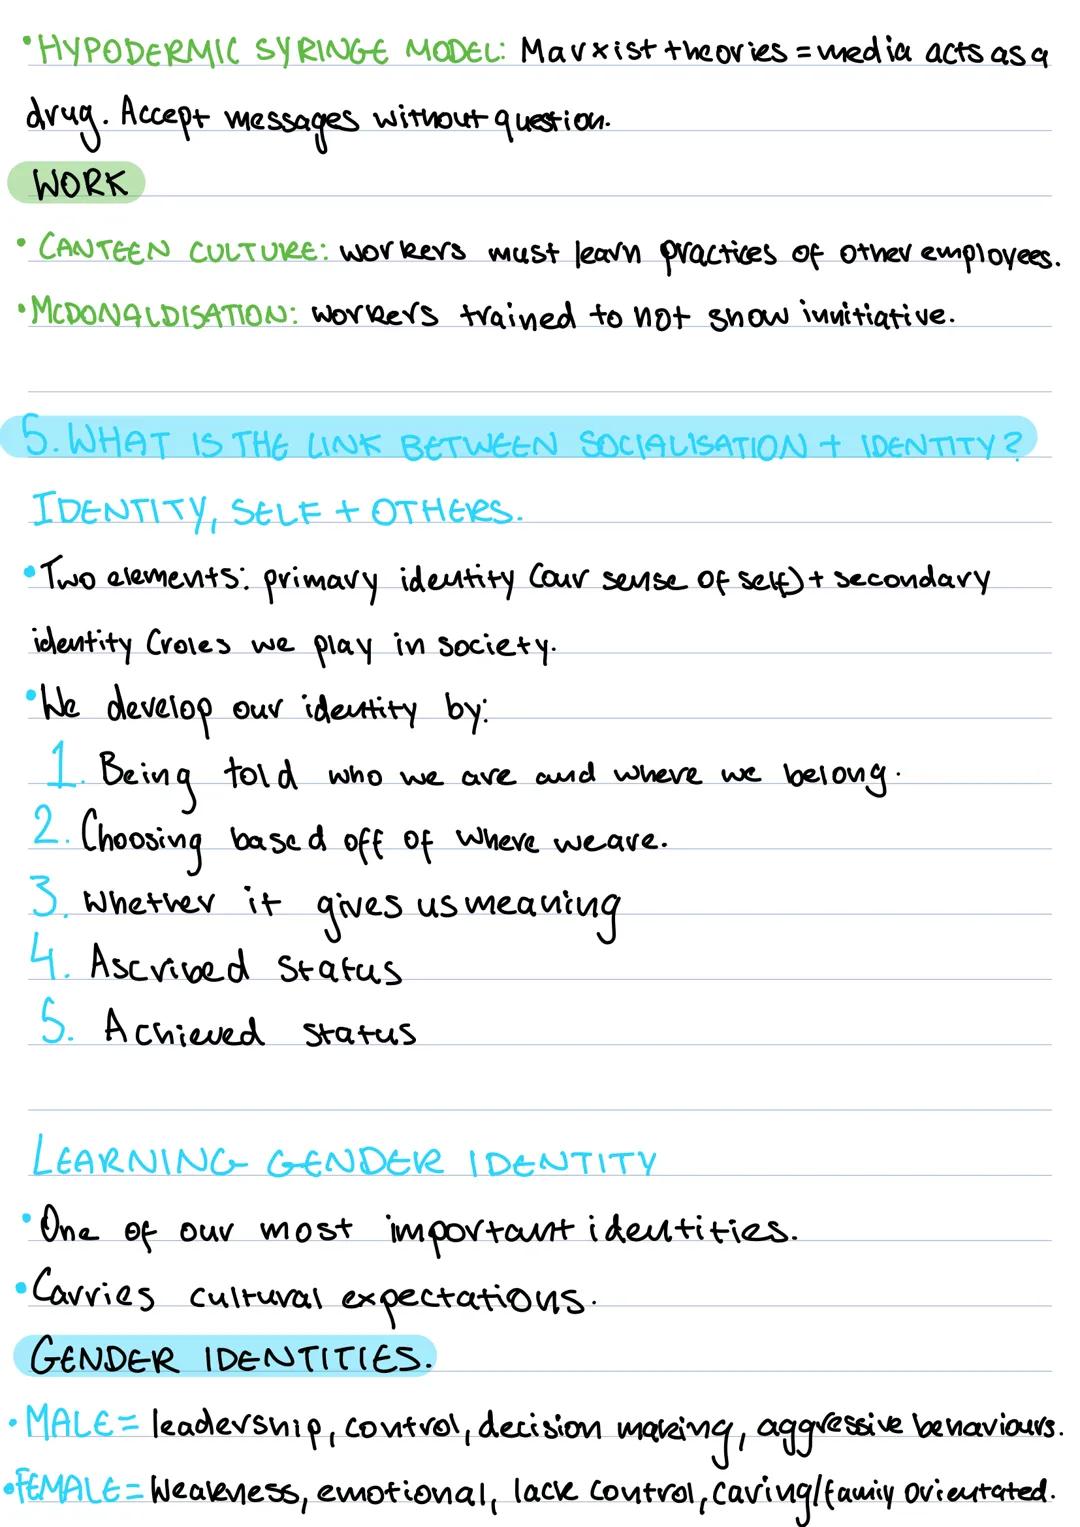 • HYPODERMIC SYRINGE MODEL: Marxist theories = media acts as a
drug. Accept messages without question.
WORK
• CANTEEN CULTURE: workers must learn practices of other employees.
• MCDONALDISATION: workers trained to not show innitiative.
5. WHAT IS THE LINK BETWEEN SOCIALISATION + IDENTITY?
IDENTITY, SELF + OTHERS.
• Two elements: primary identity (our sense of self) + secondary
identity (roles we play in society.
• We develop our identity by:
1. Being told who we are and where we belong.
2. Choosing based off of where we are.
3. Whether it gives us meaning
4. Ascribed status
5. Achieved status
LEARNING GENDER IDENTITY
• One of our most important identities.
• Carries cultural expectations.
GENDER IDENTITIES.
• MALE = leadership, control, decision making, aggressive behaviours.
• FEMALE = Weakness, emotional, lack control, caring/family orientated.